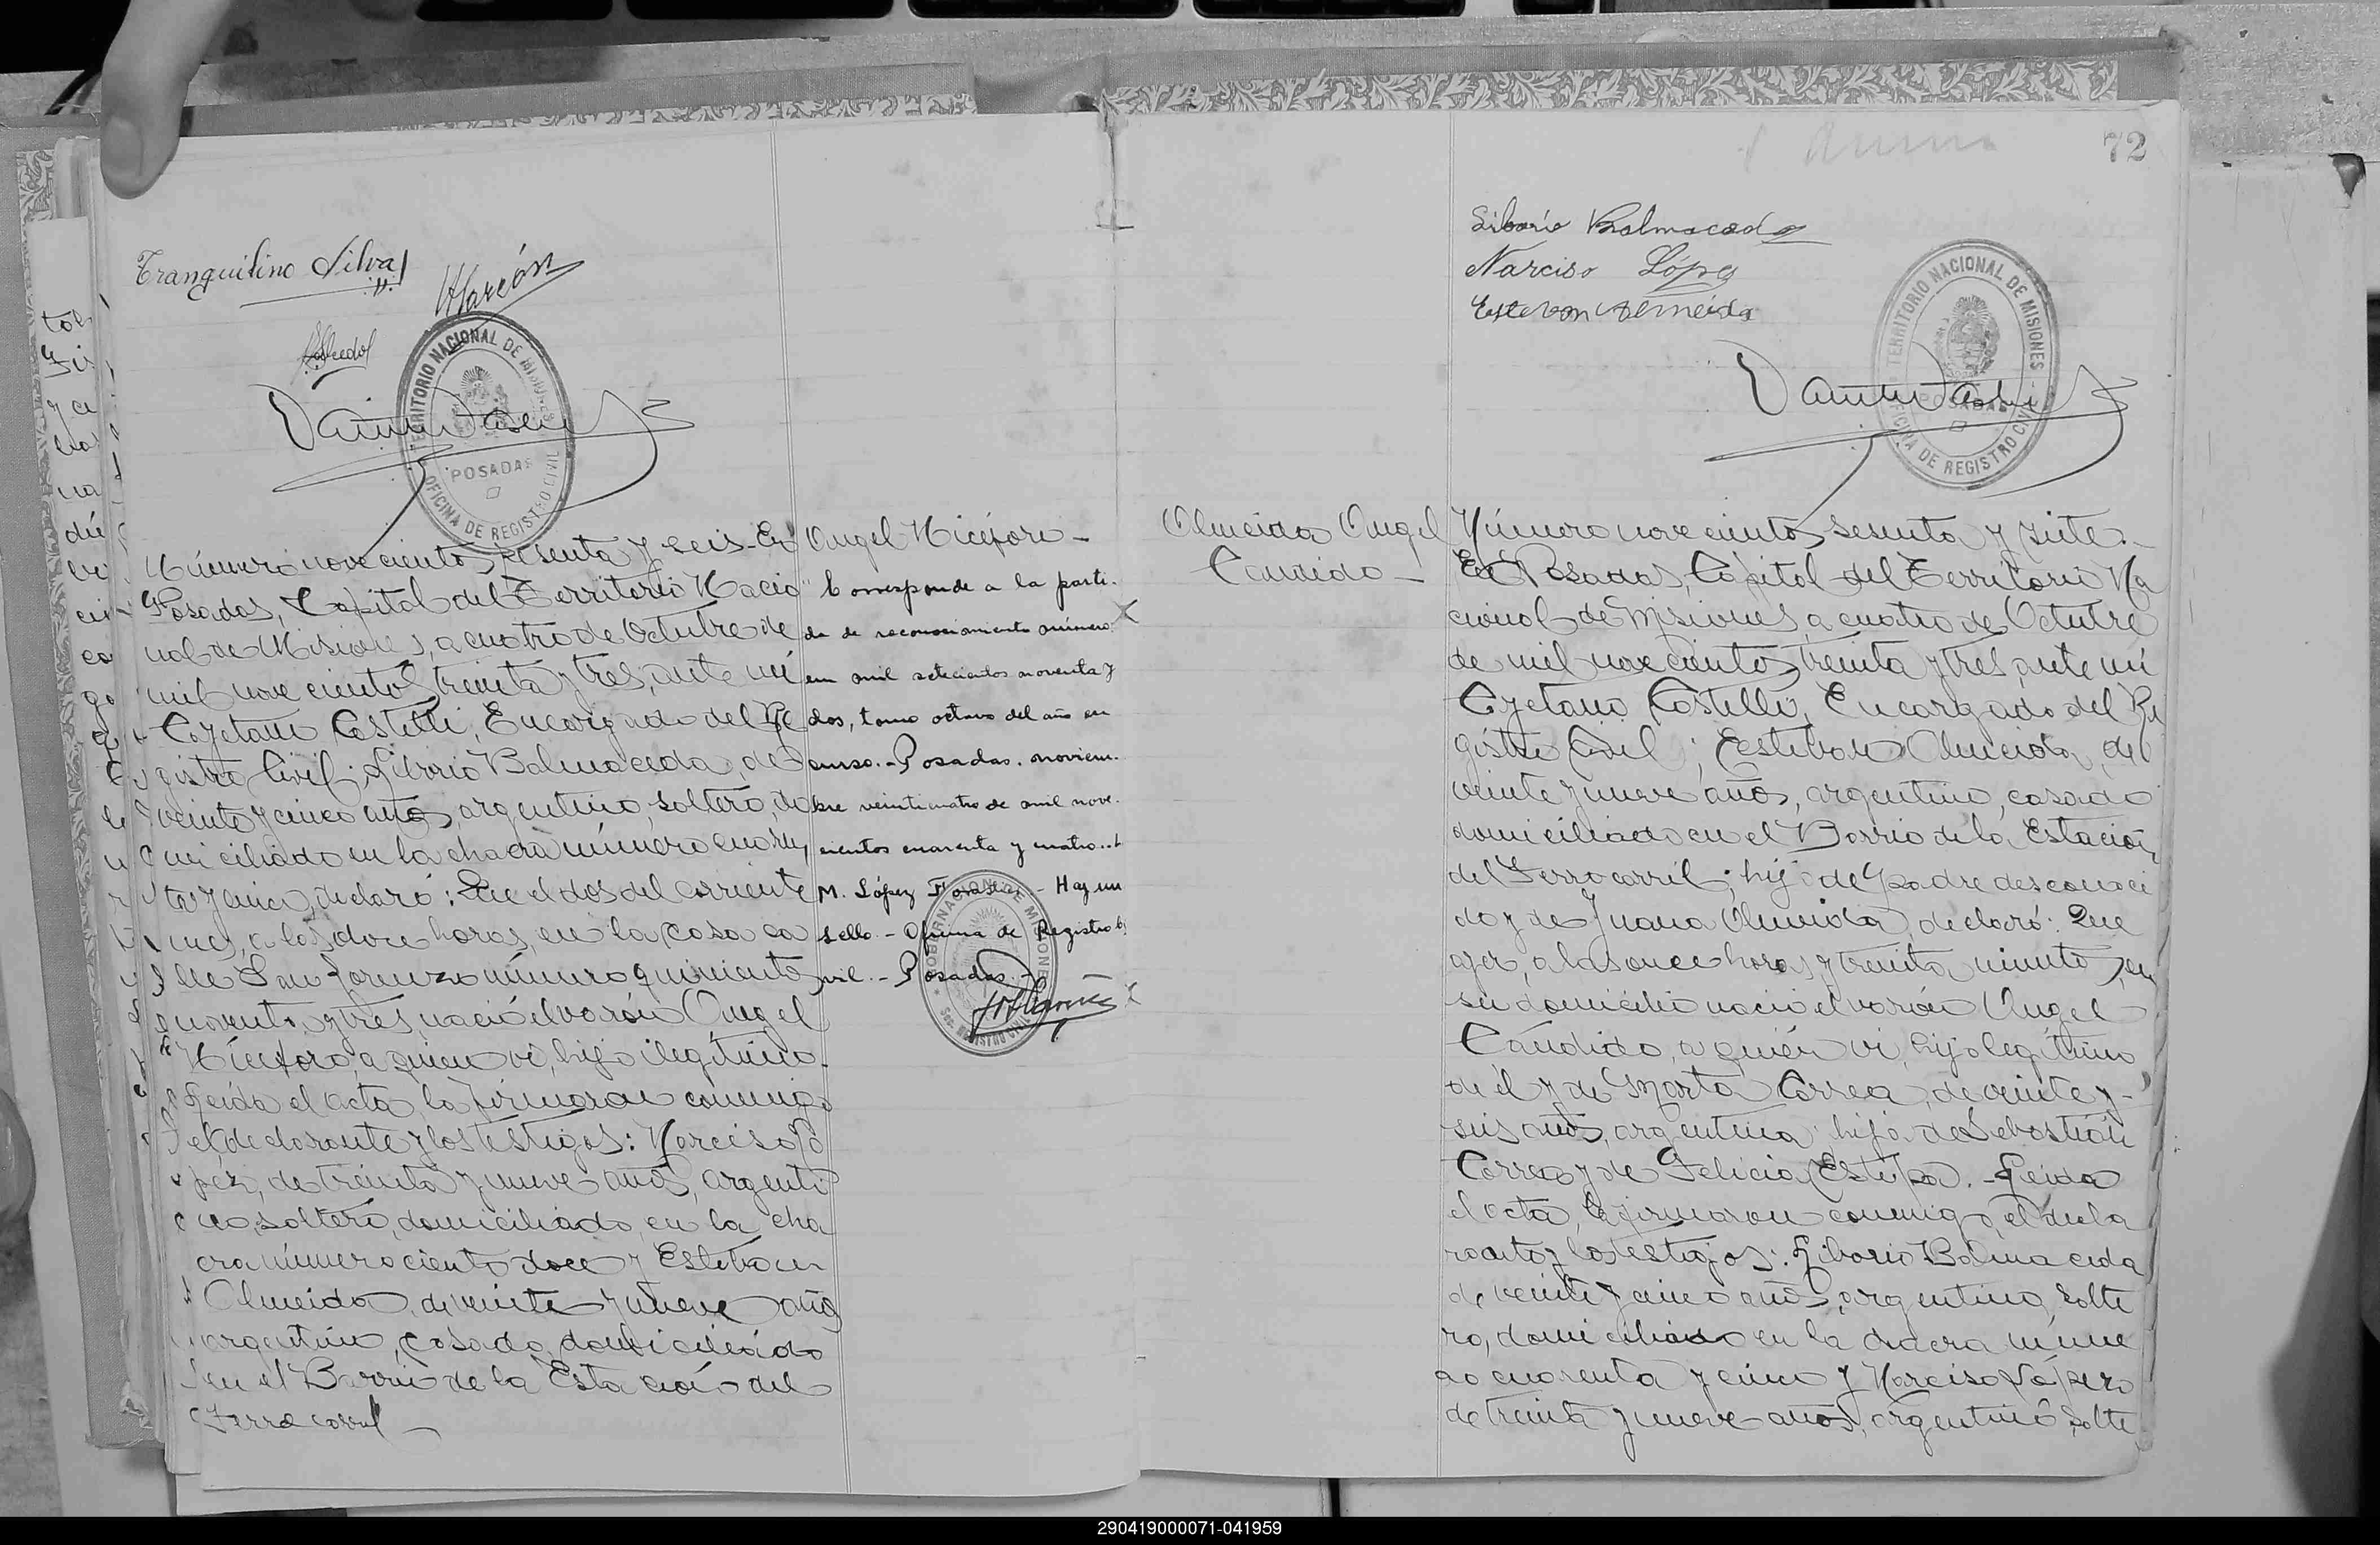 Tranquilino Silva
Alarcón
TERRITORIO NACIONAL DE MISIONES
POSADAS
OFICINA DE REGISTRO CIVIL
Número novecientos sesenta y seis. En
Posadas, Capital del Territorio Nacio
nal de Misiones, a cuatro de Octubre de
mil novecientos treinta y tres, ante mí
Cayetano Castelli, Encargado del Re
gistro Civil; Liborio Balmaceda, de
veinte y cinco años, argentino, soltero, do
miciliado en la chacra número cuaren
ta y cinco, declaró: Que el dos del corriente
mes, a las doce horas, en la casa ca
lle San Lorenzo número quinientos
noventa y tres nació el varón Angel
Nicéforo, a quien ví, hijo ilegítimo.
Leída el acta, la firmaron conmigo
el declarante y los testigos: Narciso Ló
pez, de treinta y nueve años, argenti
no, soltero, domiciliado en la cha
cra número ciento doce y Esteban
Almeida, de veinte y nueve años
argentino, casado, domiciliado
en el Barrio de la Estación del
Ferrocarril
Angel Nicéforo -
Corresponde a la parti-
da de reconocimiento número
un mil setecientos noventa y
dos, tomo octavo del año en
curso. - Posadas. noviem-
bre veinticuatro de mil nove-
cientos cuarenta y cuatro..
M. López - Hay un
sello. - Oficina de Registro Ci
vil. - Posadas. -
GOBERNACION DE MISIONES
REGISTRO CIVIL
72
Liborio Balmaceda
Narciso López
Esteban Almeida
TERRITORIO NACIONAL DE MISIONES
POSADAS
OFICINA DE REGISTRO CIVIL
Almeida Angel
Candido -
Número novecientos sesenta y siete. -
En Posadas, Capital del Territorio Na
cional de Misiones, a cuatro de Octubre
de mil novecientos treinta y tres, ante mí
Cayetano Castelli, Encargado del Re
gistro Civil; Esteban Almeida, de
veinte y nueve años, argentino, casado
domiciliado en el Barrio de la Estación
del Ferrocarril; hijo de padre desconoci
do y de Juana Almeida, declaró: Que
ayer, a las once horas y treinta minutos, en
su domicilio nació el varón Angel
Cándido, a quién ví, hijo legítimo
de él y de Marta Correa, de veinte y
seis años, argentina hija de Sebastián
Correa y de Felicia . - Leída
el acta, la firmaron conmigo, el decla
rante y los testigos: Liborio Balmaceda
de veinte y cinco años, argentino, solte
ro, domiciliado en la chacra núme
ro cuarenta y cinco y Narciso López
de treinta y nueve años, argentino, solte
290419000071-041959